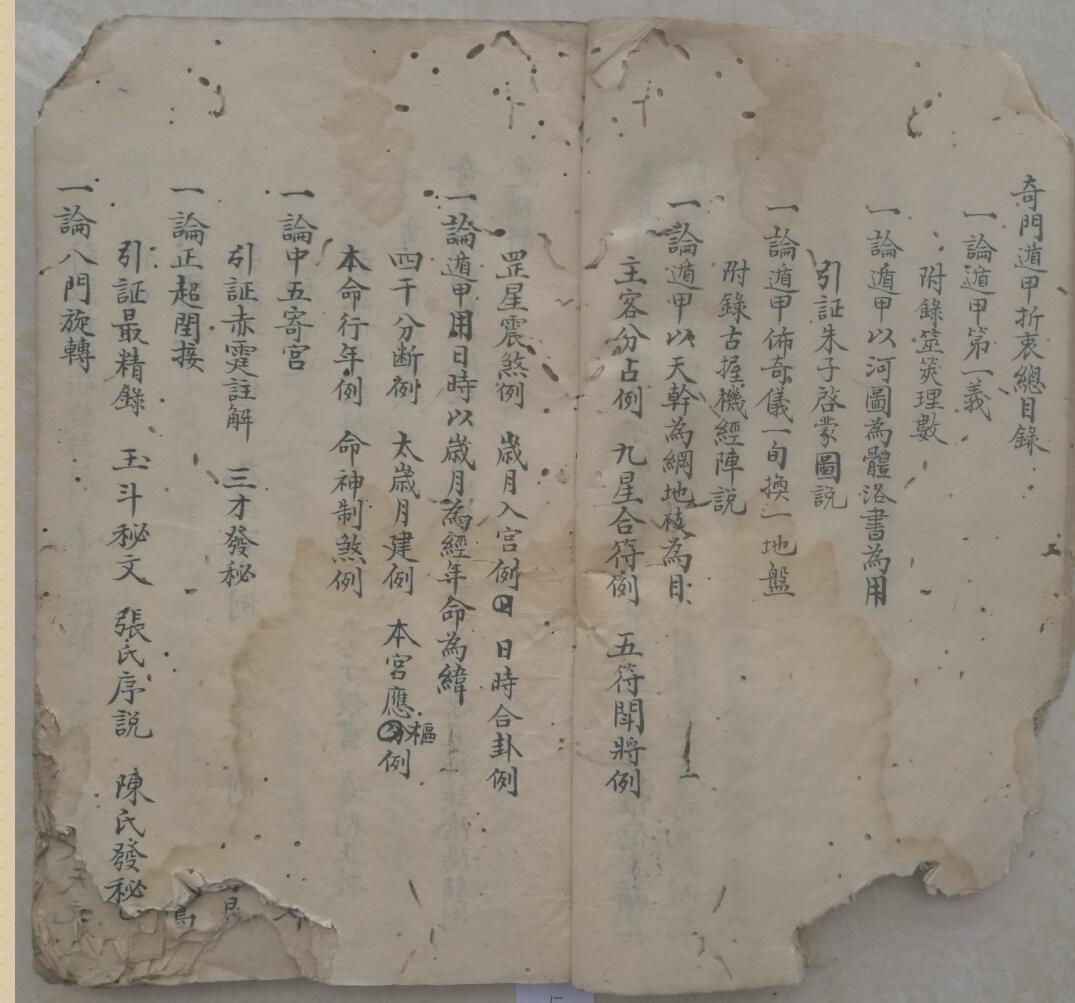 奇門遁甲折衷總目錄
一論遁甲第一義
附錄筮筴理數
一論遁甲以河圖為體洛書為用
引証朱子啓蒙圖説
一論遁甲佈奇儀一旬換一地盤
附錄古握機經陣説
一論遁甲以天幹為綱地核為目
主客分占例 九星合符例 五符閗將例
罡星震煞例 歲月入宮例 日時合卦例
一論遁甲用日時以歲月為經年命為緯
四干分断例 太歲月建例 本宮應樞例
本命行年例 命神制煞例
一論中五寄宮
引証赤霆註解 三才發秘
一論正超閏接
引証最精錄 玉斗秘文 張氏序説 陳氏發秘
一論八門旋轉